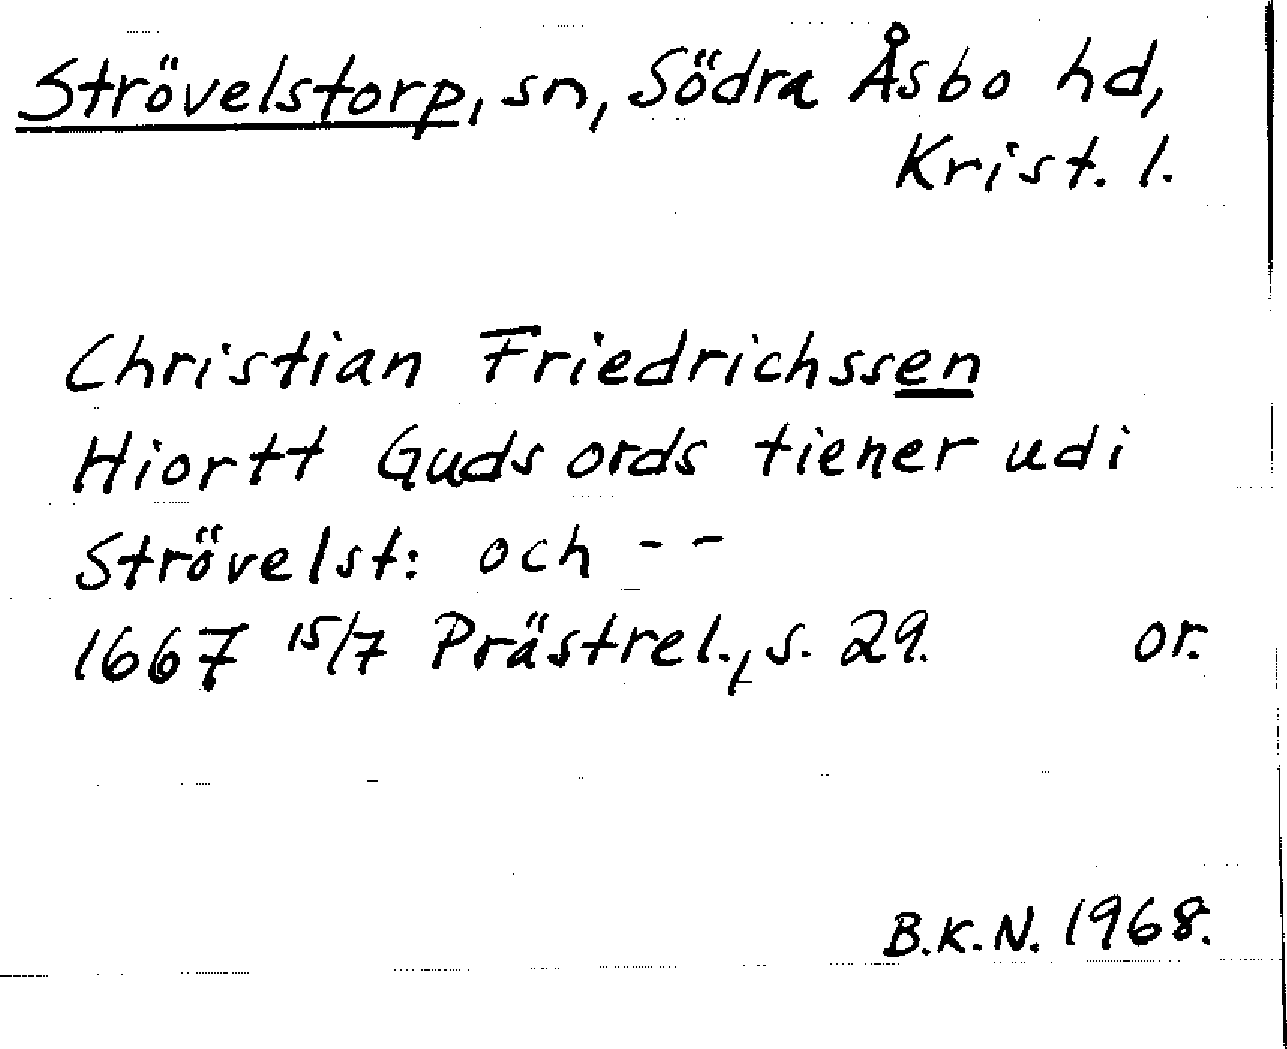 Strövelstorp, sn, Södra Åsbo hd,
Krist. l.
Christian Friedrichssen
Hiortt Guds ords tiener udi
Strövelst: och --
1667 15/7 Prästrel., s. 29. or.
B.K.N. 1968.